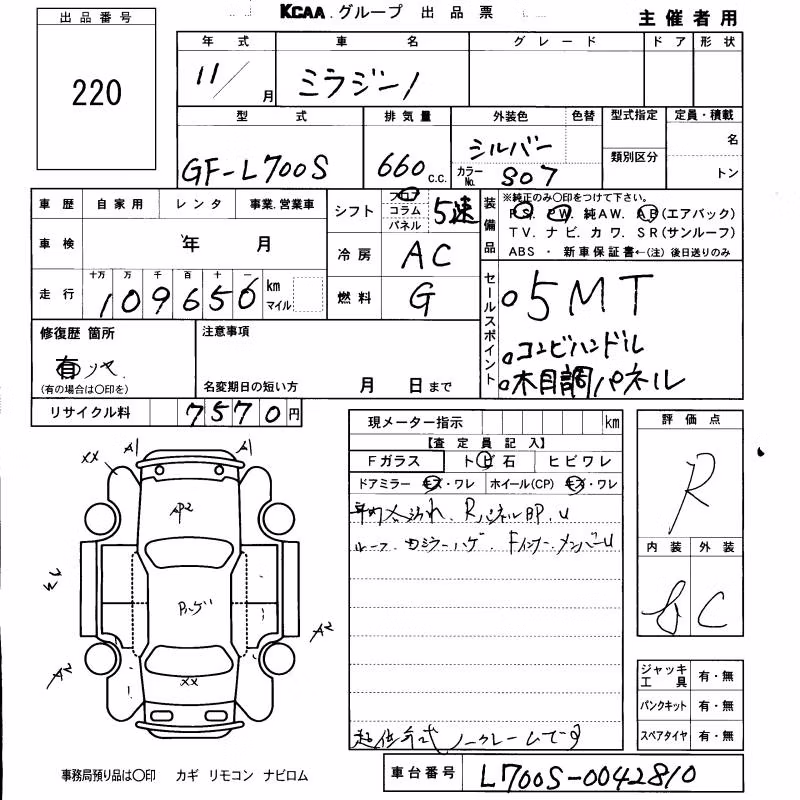 KCAA.グループ 出品票
主催者用
出品番号
220
年式 車名 グレード ドア 形状
11/ 月 ミラジーノ
型式 排気量 外装色 色替 型式指定 定員・積載
GF-L700S 660 c.c. シルバー カラーNo. S07 類別区分 名 トン
車歴 自家用 レンタ 事業.営業車
車検 年 月
走行 十万 万 千 百 十 一
109656 km マイル
シフト フロア コラム パネル 5速
冷房 AC
燃料 G
装備品
※純正のみ〇印をつけて下さい。
P.S. P.W. 純AW. A.B(エアバック)
TV. ナビ. カワ. SR(サンルーフ)
ABS ・ 新車保証書←(注) 後日送りのみ
セールスポイント
5MT
コンビハンドル
木目調パネル
修復歴 箇所
有
(有の場合は〇印を)
注意事項
名変期日の短い方 月 日まで
リサイクル料 7570円
現メーター指示 km
【査定員記入】
Fガラス トビ石 ヒビワレ
ドアミラー キズ・ワレ ホイール(CP) キズ・ワレ
Rパネル
ルーフ
ノークレームです
評価点
R
内装 外装
C
ジャッキ 工具 有・無
パンクキット 有・無
スペアタイヤ 有・無
XX A1 A1
AP2
Pハゲ
A2
A2
XX
事務局預り品は〇印 カギ リモコン ナビロム
車台番号 L700S-0042810